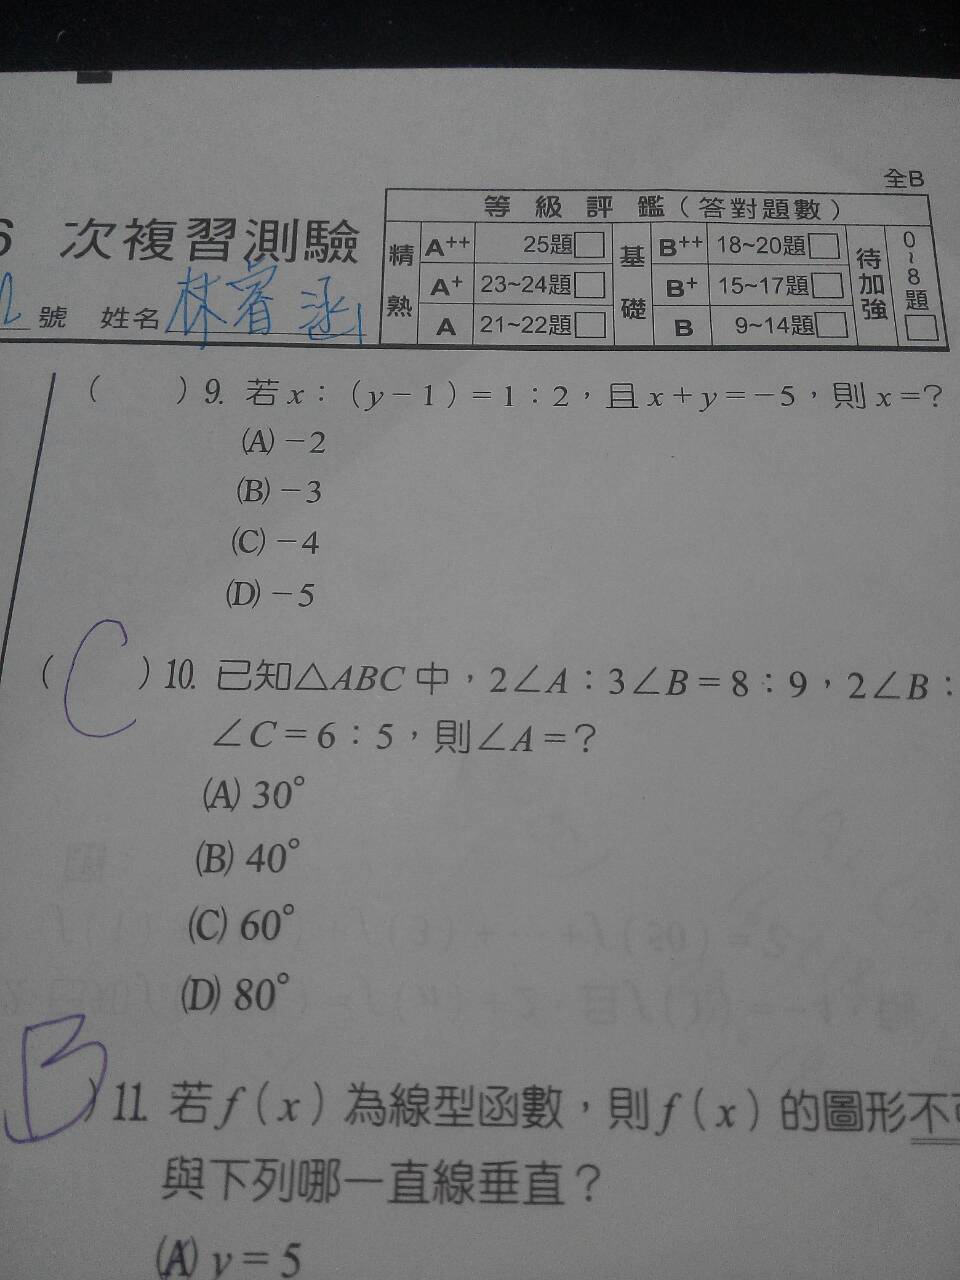 全B
6 次複習測驗
等級評鑑(答對題數)
精熟 A++ 25題 基礎 B++ 18~20題 待加強 0~8題
A+ 23~24題 B+ 15~17題
A 21~22題 B 9~14題
號 姓名 林睿涵
( ) 9. 若x:(y-1)=1:2,且x+y=-5,則x=?
(A) -2
(B) -3
(C) -4
(D) -5
( C ) 10. 已知△ABC中,2∠A:3∠B=8:9,2∠B:
∠C=6:5,則∠A=?
(A) 30°
(B) 40°
(C) 60°
(D) 80°
B ) 11. 若f(x)為線型函數,則f(x)的圖形不可
與下列哪一直線垂直?
(A) y=5